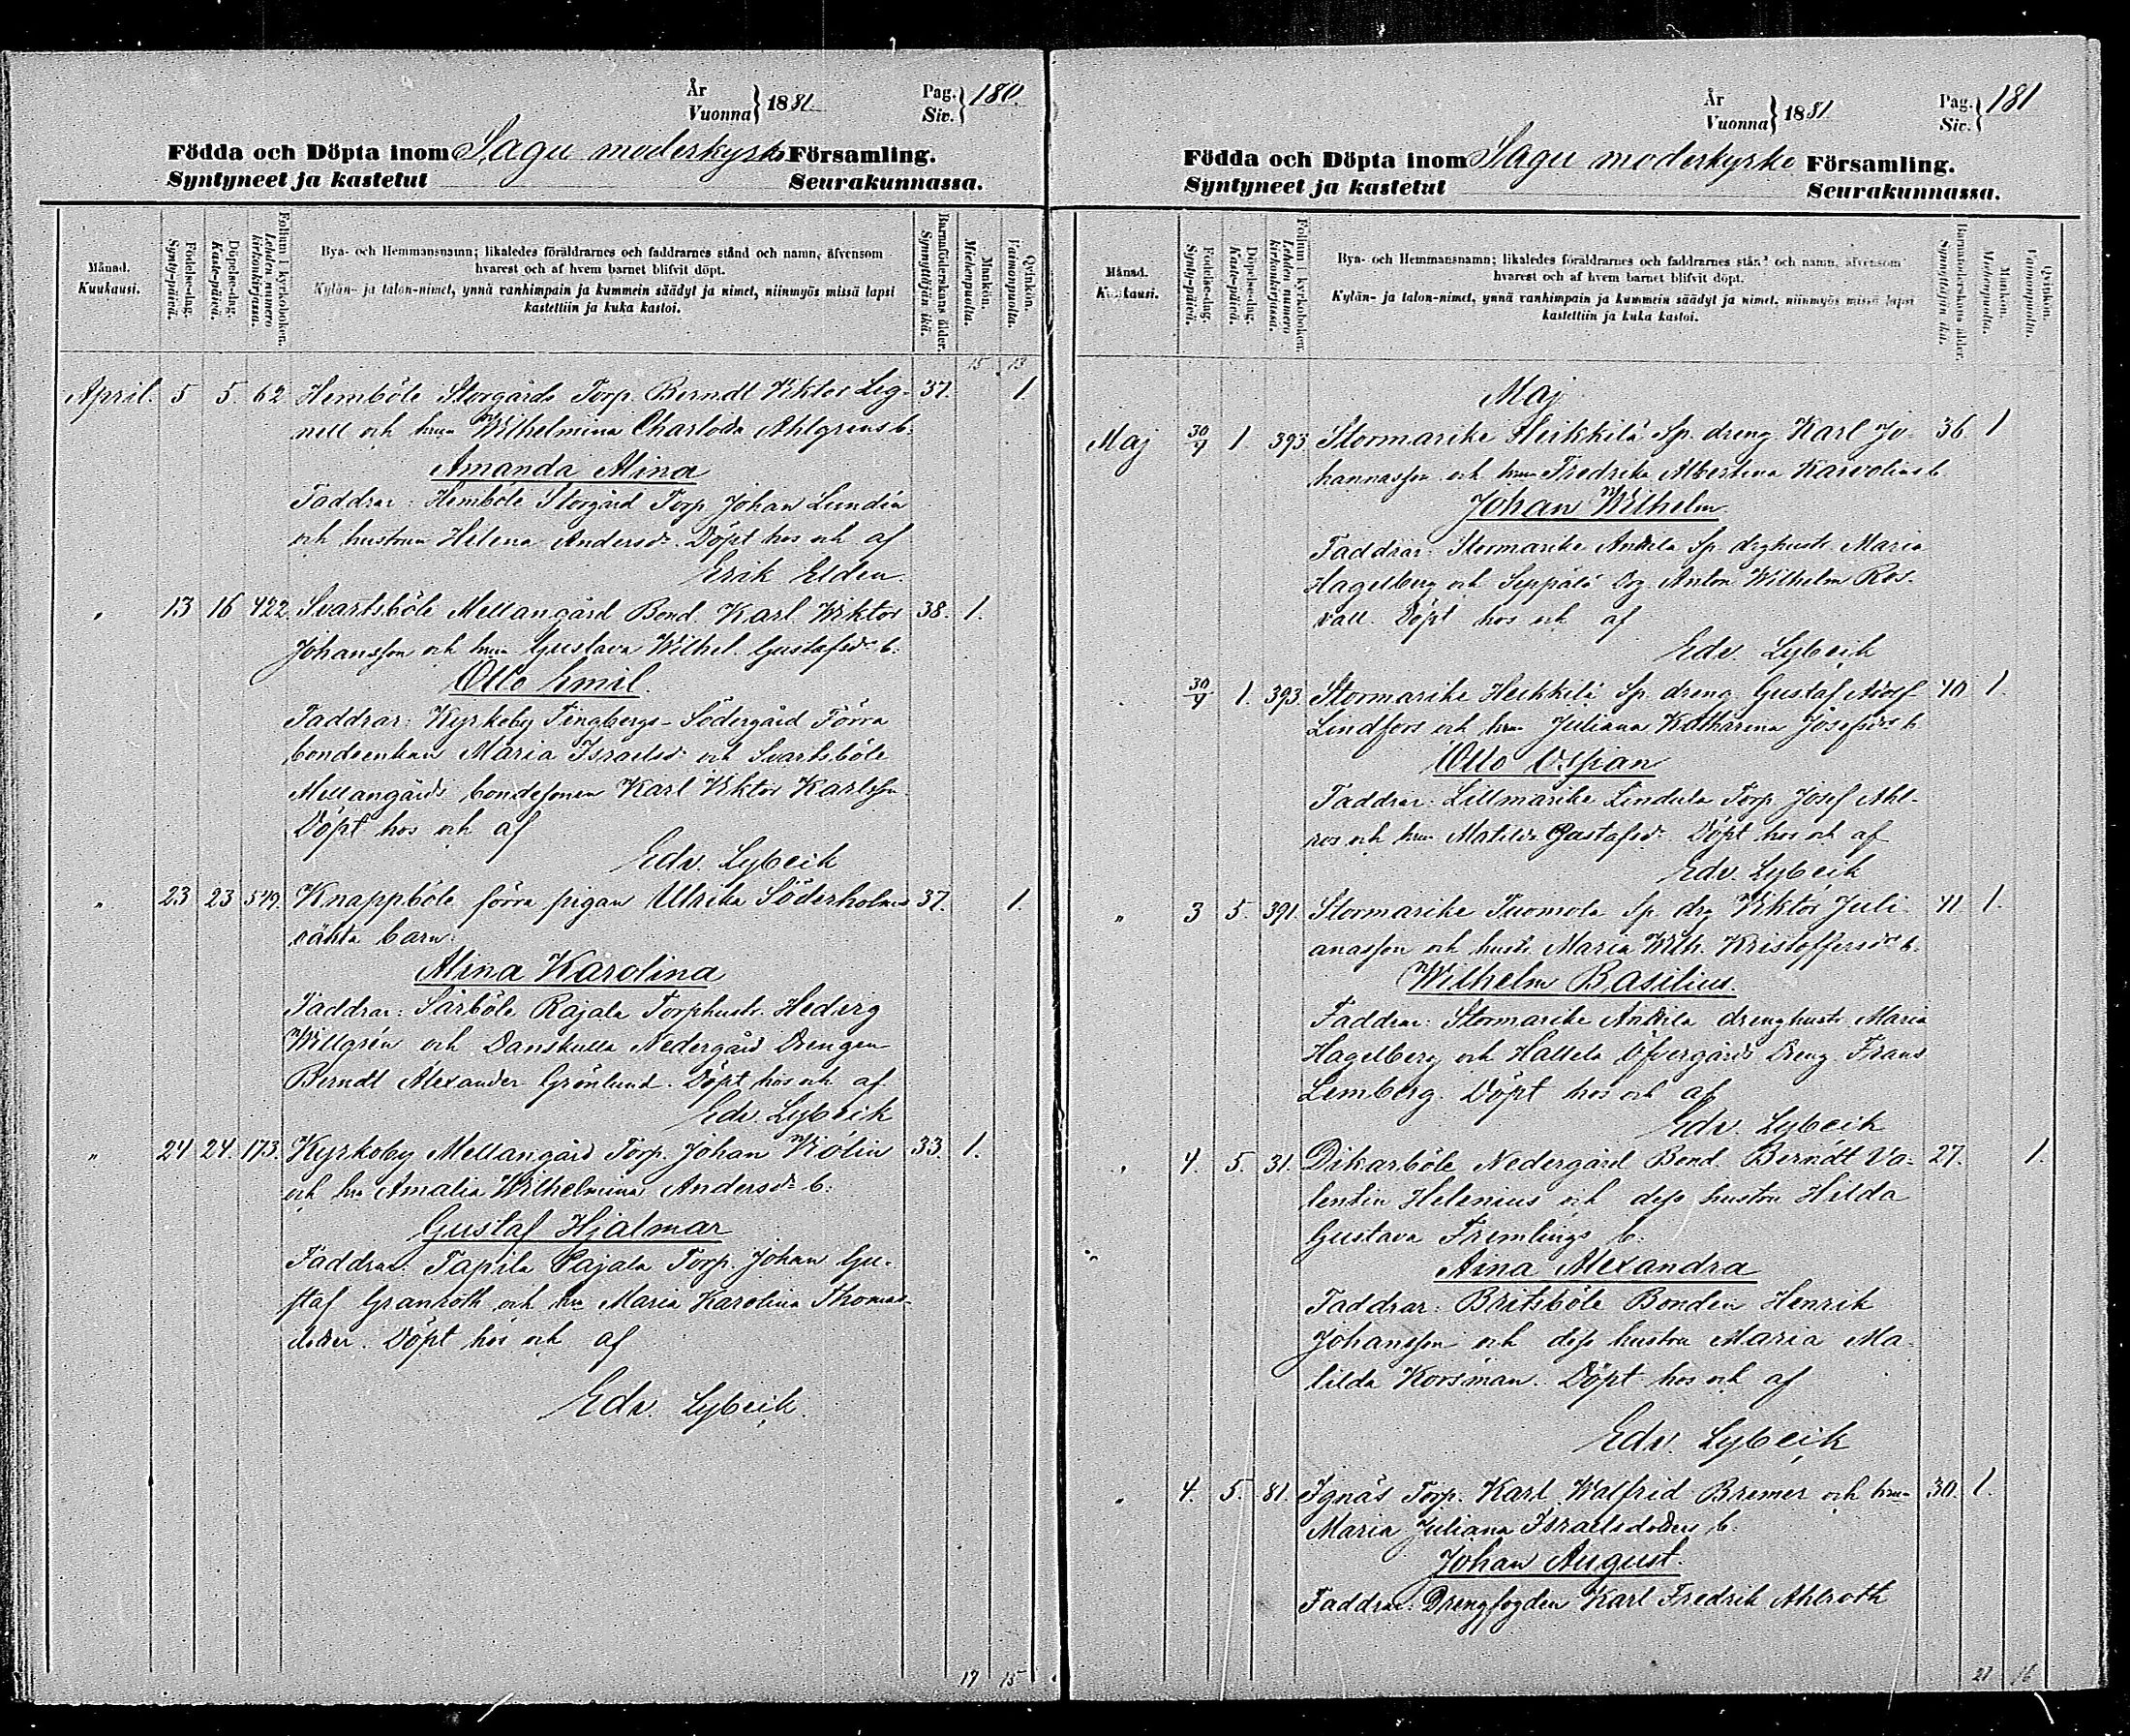 År
Vuonna } 1881
Pag.
Siv. } 180.
Födda och Döpta inom Sagu moderkyrko Församling.
Syntyneet ja kastetut Seurakunnassa.
Månad.
Kuukausi.
Födelse-dag.
Synty-päivä.
Döpelse-dag.
Kaste-päivä.
Folium i kyrkoboken.
Lehden numero kirkonkirjassa.
Bya- och Hemmansnamn; likaledes föräldrarnes och faddrarnes stånd och namn, äfvensom
hvarest och af hvem barnet blifvit döpt.
Kylän- ja talon-nimet, ynnä vanhimpain ja kummein säädyt ja nimet, niinmyös missä lapsi
kastettiin ja kuka kastoi.
Barnaföderskans ålder.
Synnyttäjän ikä.
Mankön.
Miehenpuolta.
Qvinkön.
Vaimonpuolta.
15 13
April. 5 5 62 Hemböle Storgårds Torp. Berndt Viktor Lig- 37. 1.
nell och hrun Wilhelmina Charlotta Ahlgrens b.
Amanda Alina
Faddrar: Hemböle Storgård Torp Johan Lundén
och hustrun Helena Andersdr. Döpt hos och af
Erik Elden.
" 13 16 422. Svartsböle Mellangård Bond. Karl Wiktor 38. 1.
Johansson och hrun Gustava Wilhel. Gustafsdr b.
Otto Emil.
Faddrar: Kyrkoby Tingbergs-Södergård Förra
bondeenkan Maria Israelsdr och Svartsböle
Mellangårds bondesonen Karl Viktor Karlsson
Döpt hos och af
Edv. Lybeck
" 23 23 549. Knappböle förra pigan Ulrika Söderholms 37. 1.
oäkta barn.
Alina Karolina
Faddrar: Särböle Rajala Torphustr. Hedvig
Willgrén och Danskulla Nedergård Drengen
Berndt Alexander Grönlund. Döpt hos och af
Edv. Lybeck
" 24 24. 173. Kyrkoby Mellangård Torp. Johan Violin 33. 1.
och hru Amalia Wilhelmina Andersdr b.
Gustaf Hjalmar
Faddrar: Tapila Pajala Torp. Johan Gu-
staf Granroth och hru Maria Karolina Thomas-
dotter. Döpt hos och af
Edv. Lybeck.
17 15
År
Vuonna } 1881
Pag.
Siv. } 181
Födda och Döpta inom Sagu moderkyrko Församling.
Syntyneet ja kastetut Seurakunnassa.
Månad.
Kuukausi.
Födelse-dag.
Synty-päivä.
Döpelse-dag.
Kaste-päivä.
Folium i kyrkoboken.
Lehden numero kirkonkirjassa.
Bya- och Hemmansnamn; likaledes föräldrarnes och faddrarnes stånd och namn, äfvensom
hvarest och af hvem barnet blifvit döpt.
Kylän- ja talon-nimet, ynnä vanhimpain ja kummein säädyt ja nimet, niinmyös missä lapsi
kastettiin ja kuka kastoi.
Barnaföderskans ålder.
Synnyttäjän ikä.
Mankön.
Miehenpuolta.
Qvinkön.
Vaimonpuolta.
Maj
Maj 30/4 1. 393. Stormarike Heikkilä Sp. dreng Karl Jo- 36 1
hannesson och hrun Fredrika Albertina Karvolins b.
Johan Wilhelm
Faddrar: Stormarike Anttila Sp drghustr Maria
Hagelberg och Seppälä Drg Anton Wilhelm Ros-
vall. Döpt hos och af
Edv. Lybeck
30/4 1. 393. Stormarike Heikkilä Sp. dreng Gustaf Adolf 40 1.
Lindfors och hru Juliana Katharina Josefsdr b
Otto Ossian
Faddrar: Lillmarike Lindula Torp Josef Ahl-
ros och hru Matilda Gustafsdr. Döpt hos och af
Edv. Lybeck
" 3 5. 391. Stormarike Tuomola Sp drg Viktor Juli- 41 1.
anasson och hustr. Maria Wilh. Kristoffersdr b.
Wilhelm Basilius.
Faddrar: Stormarike Anttila drenghustr Maria
Hagelberg och Hallela Öfvergårds Dreng Frans
Lemberg. Döpt hos och af
Edv. Lybeck
" 4. 5. 31. Dikarböle Nedergård Bond. Berndt Va- 27. 1.
lentin Helenius och dess hustru Hilda
Gustava Fremlings b.
Aina Alexandra
Faddrar: Britsböle Bonden Henrik
Johansson och dess hustru Maria Ma-
tilda Korsman. Döpt hos och af
Edv. Lybeck
" 4. 5. 81. Ignäs Torp. Karl Walfrid Bremer och hrun 30. 1.
Maria Juliana Israelsdotters b.
Johan August.
Faddrar: Drengfogden Karl Fredrik Ahlroth
21 16